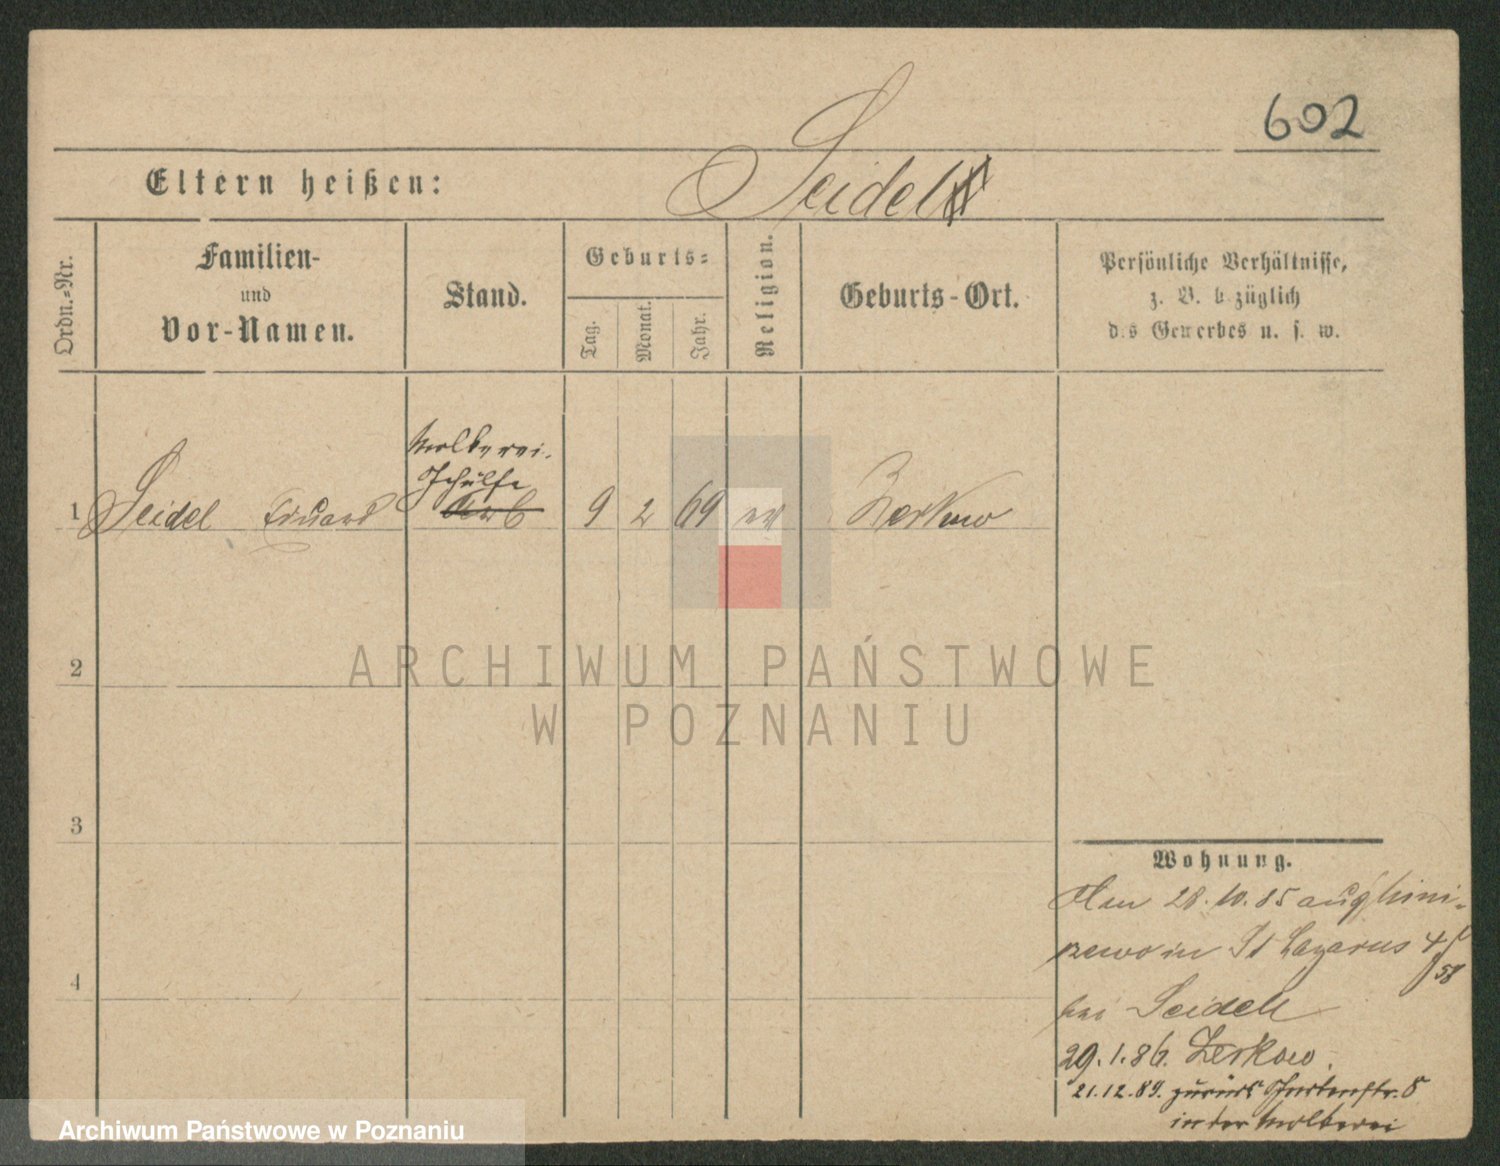 602
Eltern heißen: Seidel
Ordn.-Nr.
Familien-
und
Vor-Namen.
Stand.
Geburts-
Tag.
Monat.
Jahr.
Religion.
Geburts-Ort.
Persönliche Verhältnisse,
z. B. bezüglich
des Gewerbes u. s. w.
Molkerei-
Gehülfe
1 Seidel Eduard Arb 9 2 69 ev Zerkow
2
3
4
Wohnung.
28.10.85 aus
in St Lazarus 4/58
bei Seidel
29.1.86. Zerkow.
21.12.89. zurück 8
in der Molkerei
ARCHIWUM PAŃSTWOWE
W POZNANIU
Archiwum Państwowe w Poznaniu